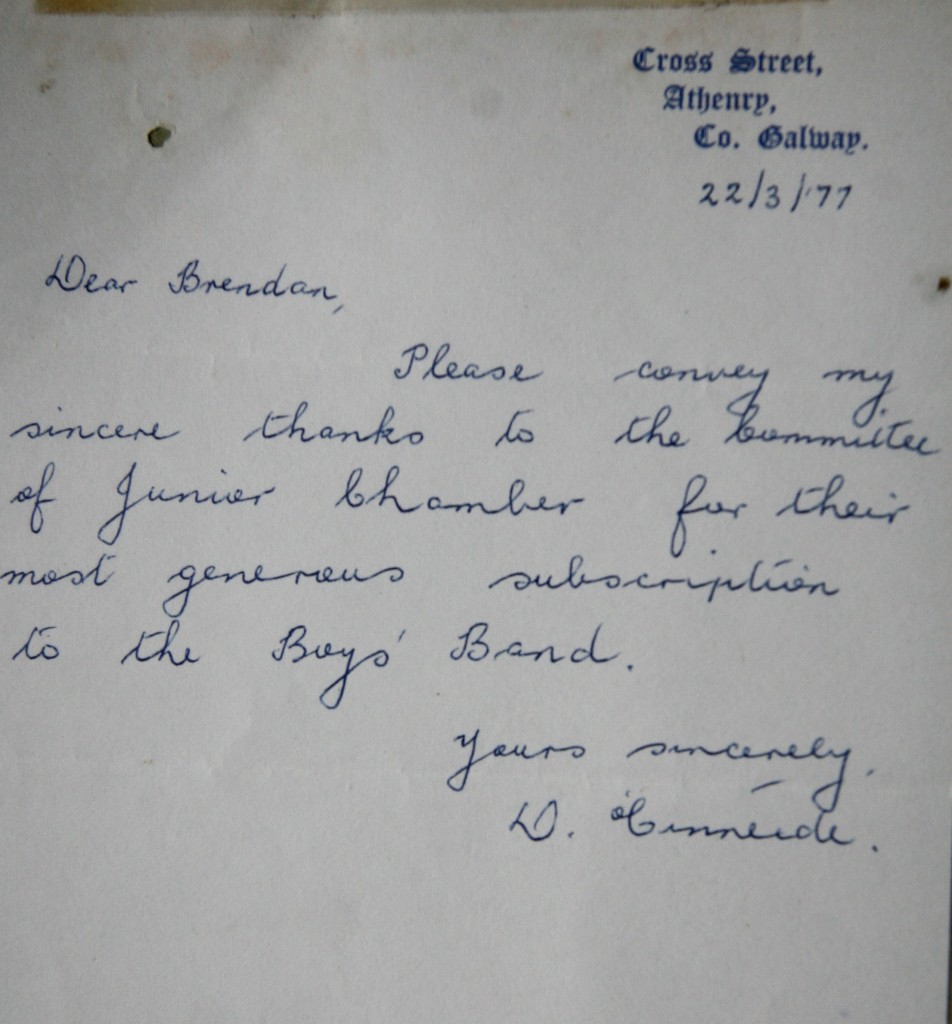 Cross Street,
Athenry,
Co. Galway.
22/3/'77
Dear Brendan,
Please convey my
sincere thanks to the Committee
of Junior Chamber for their
most generous subscription
to the Boys' Band.
Yours sincerely,
D.